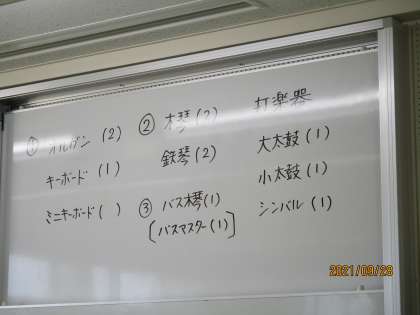 ① オルガン (2)
キーボード (1)
ミニキーボード ( )
② 木琴 (2)
鉄琴 (2)
③ バス木琴 (1)
[バスマスター (1)]
打楽器
大太鼓 (1)
小太鼓 (1)
シンバル (1)
2021/09/28